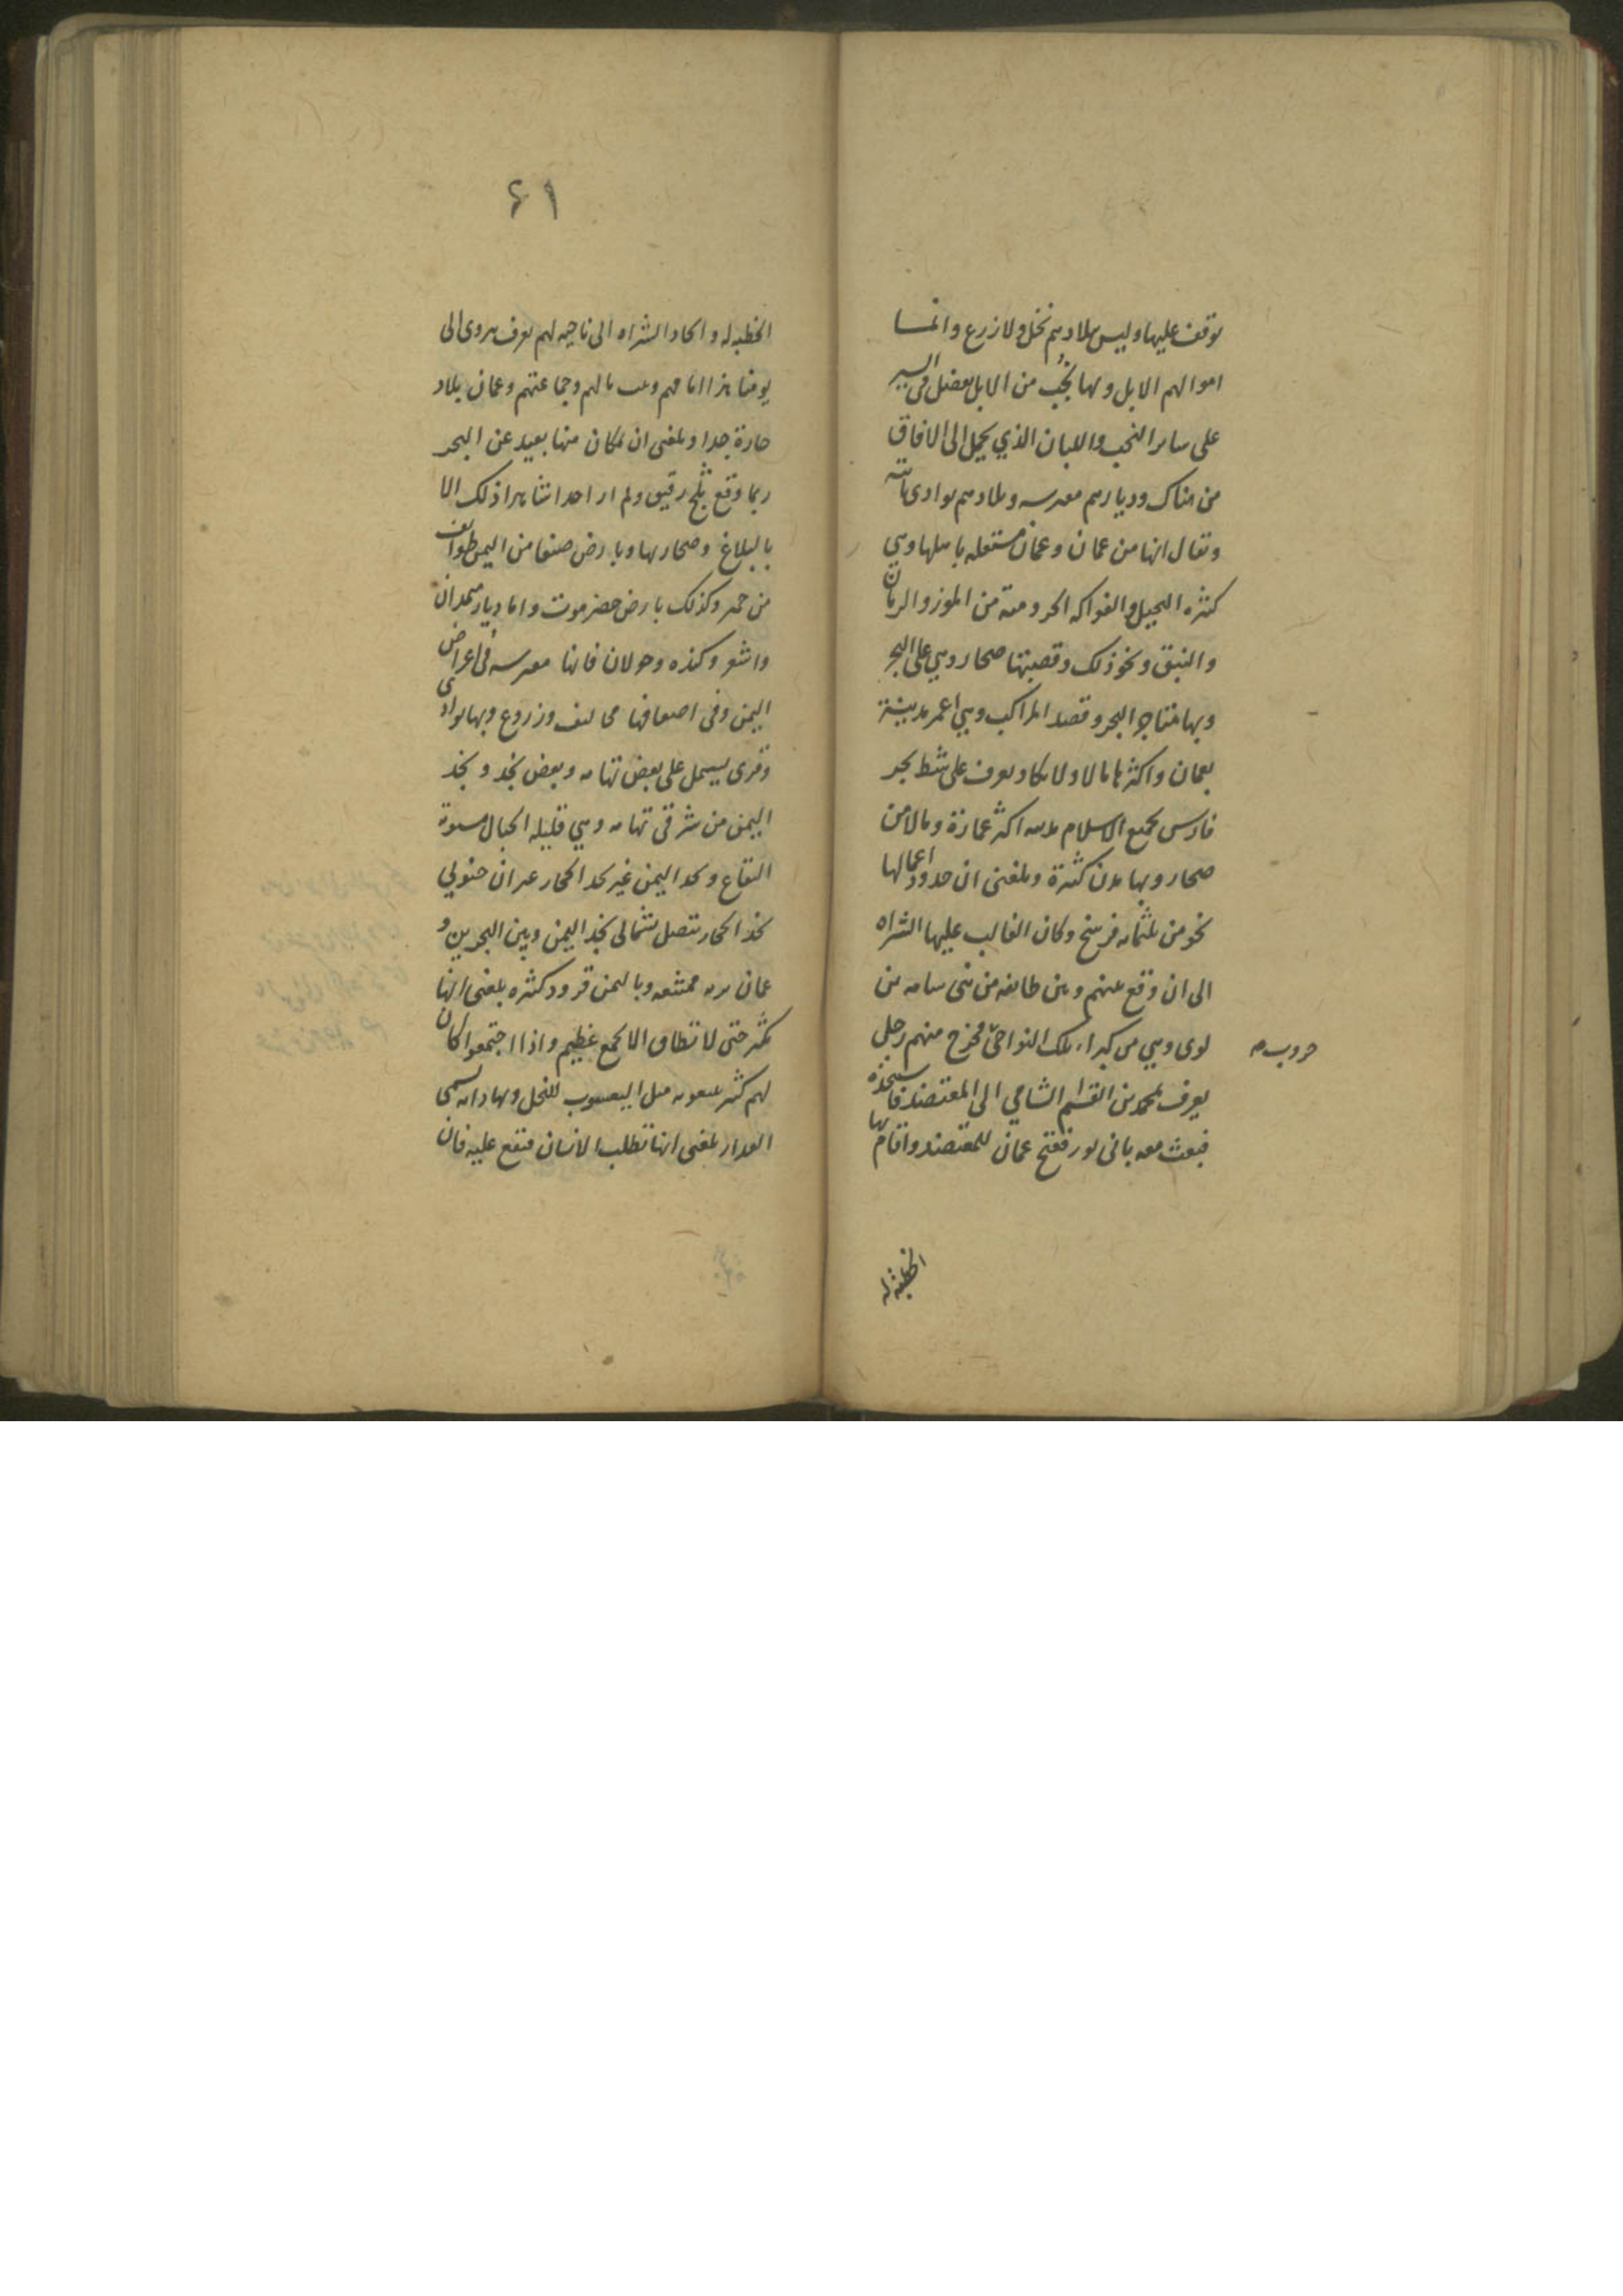 توقف عليها وليس ببلادهم نخل ولا زرع وانما
اموالهم الابل وبها نُجُب من الابل بفضل فى السير
على ساير النجب واللبان الذي يحمل الى الافاق
من هناك وديارهم مفترسه وبلادهم بوادى نائية
ويقال انها من عمان وعمان مستقله باهلها وهي
كثيره النخيل والفواكه الحروميّة من الموز والرمان
والنبق ونحو ذلك وقصبتها صحار وهي على البحر
وبها متاجر البحر وقصد المراكب وهي اعمر مدينة
بعمان واكثرها مالا ولا يكاد يعرف على شط بحر
فارس بجميع الاسلام مدينه اكثر عمارة ومالا من
صحار وبها مدن كثيرة وبلغنى ان حدود اعمالها
نحو من ثلثمايه فرسخ وكان الغالب عليها الشراه
الى ان وقع بينهم وبين طايفه من بنى سامه بن
لوى وهي من كبراء تلك النواحىّ فخرج منهم رجل
حروب صه
يعرف بمحمد بن القسم الشامي الى المعتضد فاستنجده
فبعث معه بابى ثور ففتح عمان للمعتضد واقام بها
الخطبة له
٤١
الخطبه له وانحاز الشراه الى ناحيه لهم يعرف بنزوى الى
يومنا هذا امامهم وبيت مالهم وجماعتهم وعمان بلاد
حارة جدا وبلغنى ان بمكان منها بعيد عن البحر
ربما وقع ثلج رقيق ولم ار احدا شاهد ذلك الا
بالبلاغ وصحاريها وبارض صنعا من اليمن طوايف
من حمير وكذلك بارض حضرموت واما ديار همدان
واشعر وكنده وخولان فانها مفترسه فى اعراض
اليمن وفى اضعافها مخاليف وزروع وبها بوادى
وقرى يشمل على بعض تهامه وبعض نجد ونجد
اليمن من شرقى تهامه وهي قليله الجبال مستوية
البقاع ونجد اليمن غير نجد الحجاز غير ان جنوبي
نجد الحجاز يتصل بشمالى نجد اليمن وبين البحرين و
عمان بريه ممتنعه وباليمن قرود كثيره بلغنى انها
تكثر حتى لا تطاق الا بجمع عظيم واذا اجتمعوا كان
لهم كثير يتبعونه مثل اليعسوب للنحل وبها دابه تسمى
العدار بلغنى انها تطلب الانسان فتقع عليه فان